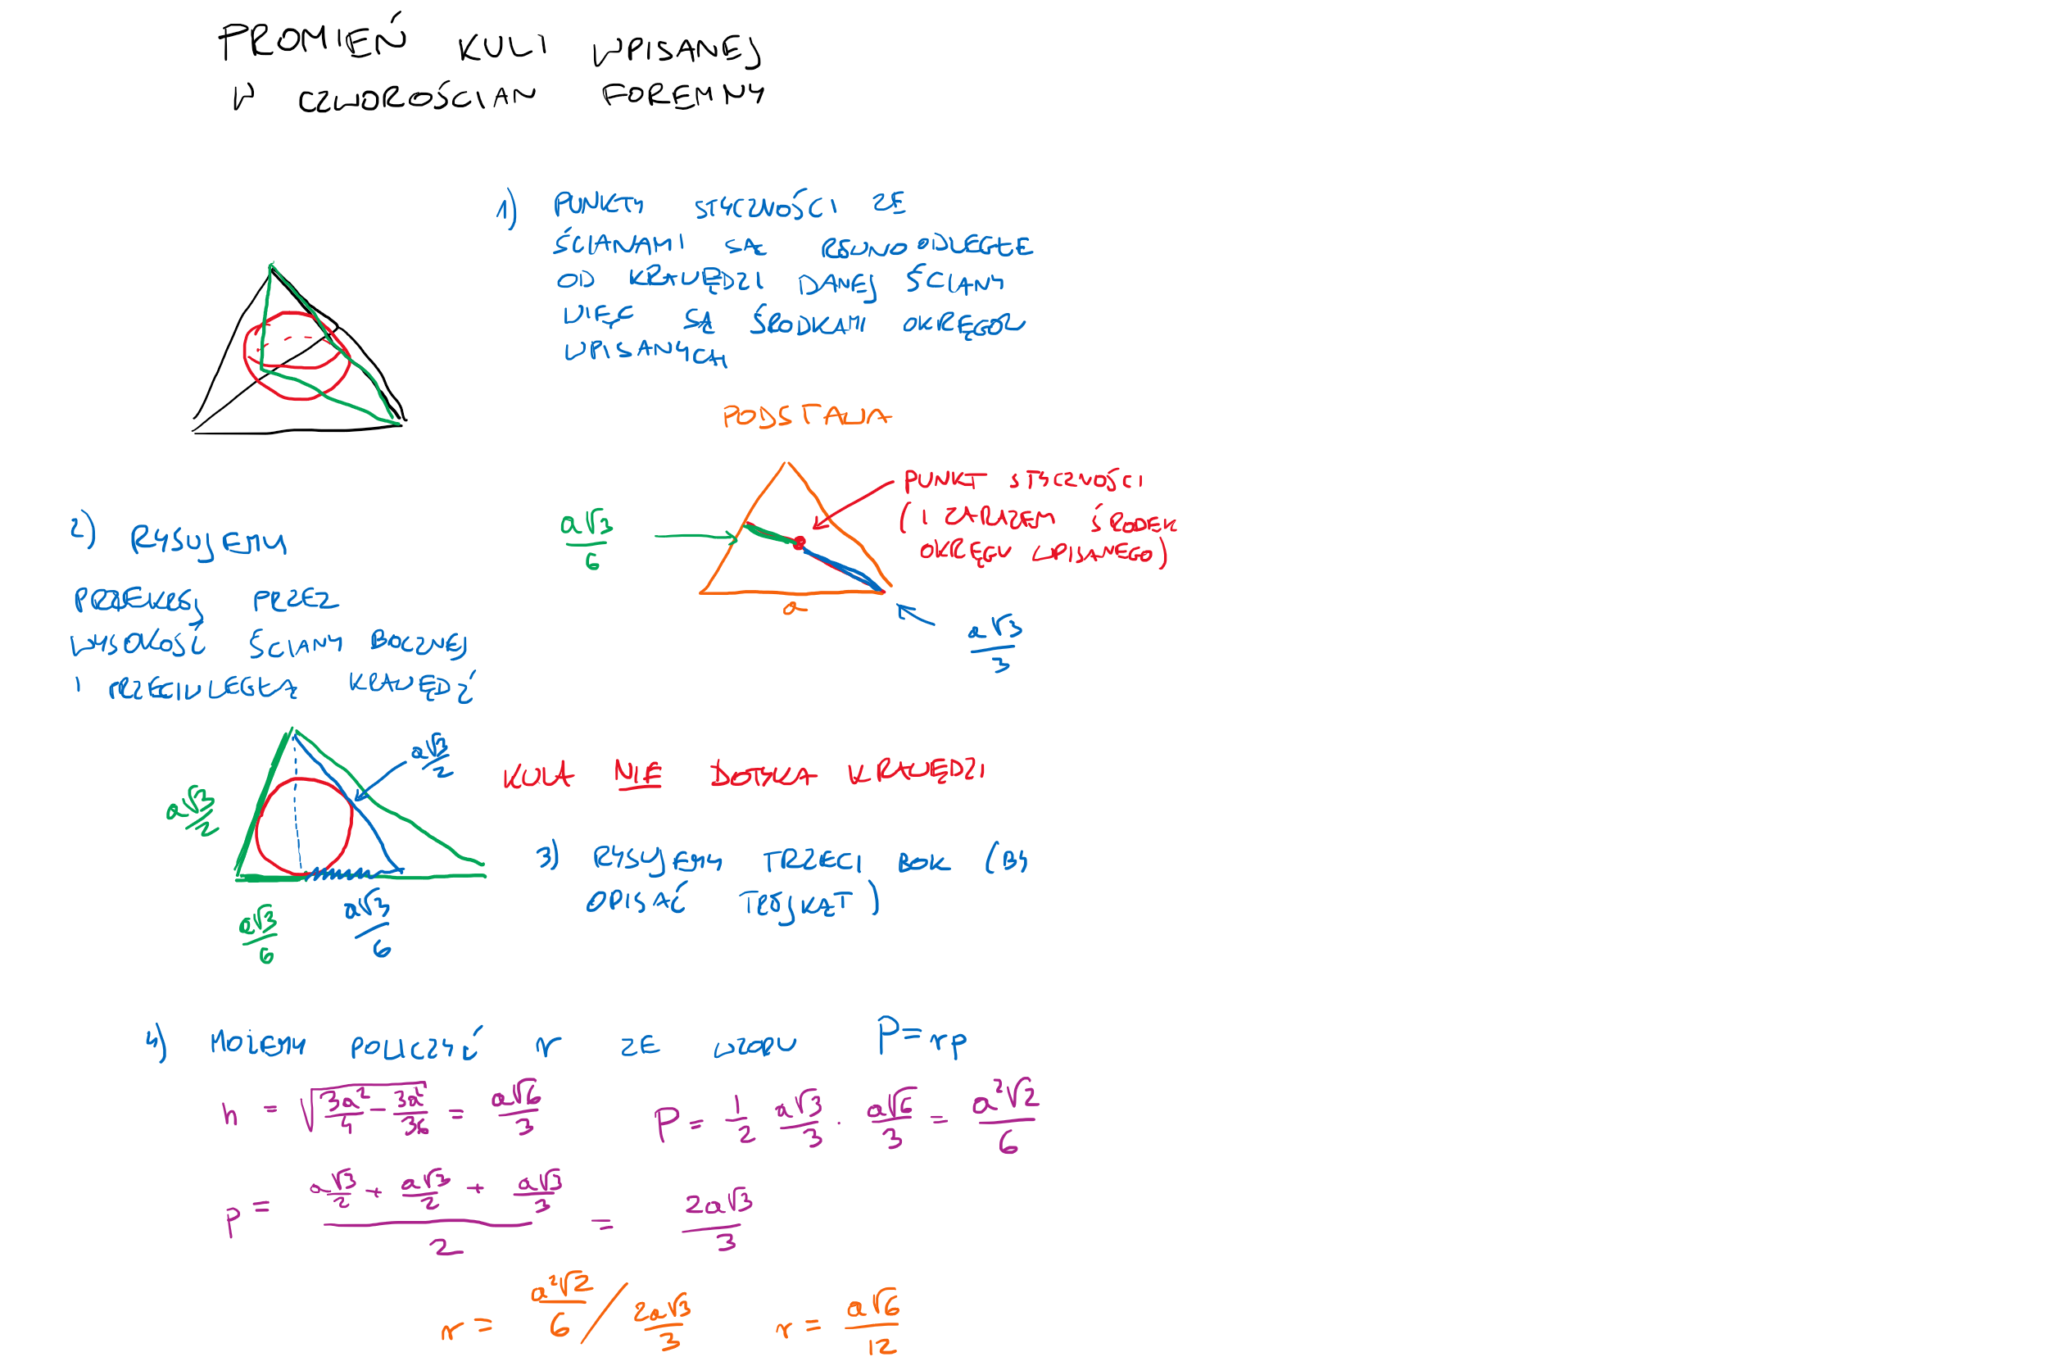 PROMIEŃ KULI WPISANEJ
W CZWOROŚCIAN FOREMNY
1) PUNKTY STYCZNOŚCI ZE
ŚCIANAMI SĄ RÓWNOODLEGŁE
OD KRAWĘDZI DANEJ ŚCIANY
WIĘC SĄ ŚRODKAMI OKRĘGÓW
WPISANYCH
PODSTAWA
a√3/6
PUNKT STYCZNOŚCI
(I ZARAZEM ŚRODEK
OKRĘGU WPISANEGO)
a
a√3/3
2) RYSUJEMY
PRZEKRÓJ PRZEZ
WYSOKOŚĆ ŚCIANY BOCZNEJ
I PRZECIWLEGŁĄ KRAWĘDŹ
a√3/2
a√3/2
a√3/6
a√3/6
KULA NIE DOTYKA KRAWĘDZI
3) RYSUJEMY TRZECI BOK (BY
OPISAĆ TRÓJKĄT)
4) MOŻEMY POLICZYĆ r ZE WZORU P=rp
h = √(3a²/4 - 3a²/36) = a√6/3 P = 1/2 a√3/3 · a√6/3 = a²√2/6
p = (a√3/2 + a√3/2 + a√3/3)/2 = 2a√3/3
r = a²√2/6 / 2a√3/3 r = a√6/12